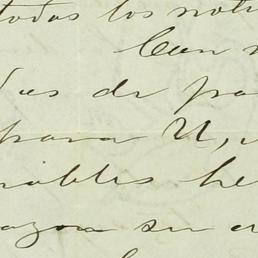 todos los noti
Con
das de pa
para U,
rables he
azon su